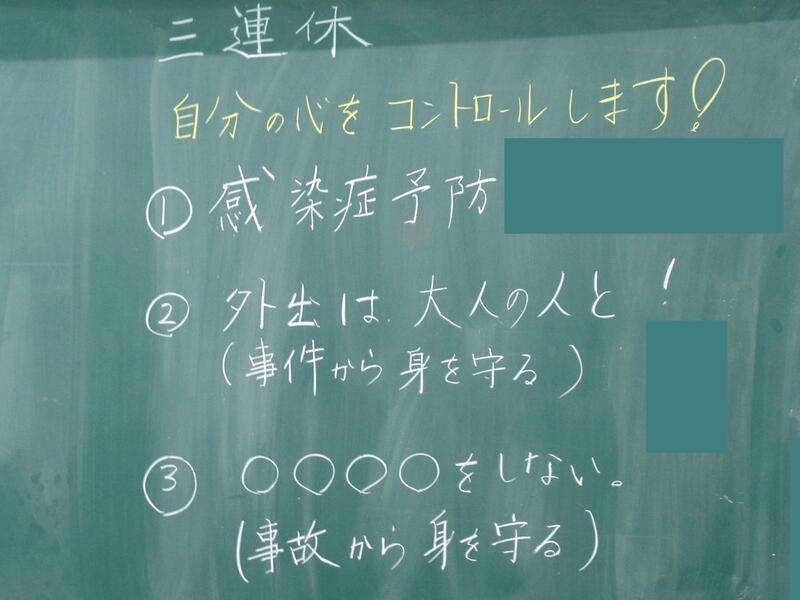 三連休
自分の心をコントロールします!
① 感染症予防
② 外出は大人の人と!
(事件から身を守る)
③ ○○○○をしない。
(事故から身を守る)